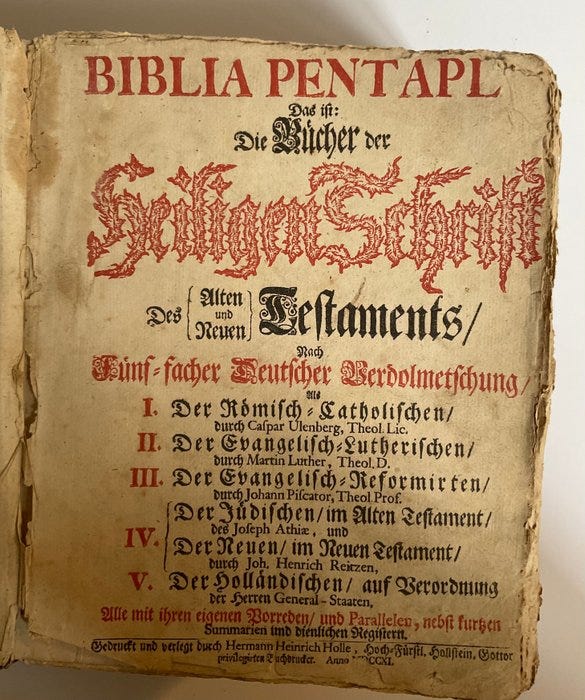 BIBLIA PENTAPL
Das ist:
Die Bücher der
Heiligen Schrift
Des Alten und Neuen Testaments/
Nach
Fünf-facher Deutscher Verdolmetschung/
Als
I. Der Römisch-Catholischen/
durch Caspar Ulenberg, Theol. Lic.
II. Der Evangelisch-Lutherischen/
durch Martin Luther, Theol. D.
III. Der Evangelisch-Reformirten/
durch Johann Piscator, Theol. Prof.
IV. Der Jüdischen/ im Alten Testament/
des Joseph Athiæ, und
Der Neuen/ im Neuen Testament/
durch Joh. Henrich Reitzen,
V. Der Holländischen/ auf Verordnung
der Herren General-Staaten,
Alle mit ihren eigenen Vorreden/ und Parallelen, nebst kurtzen
Summarien und dienlichen Registern.
Gedruckt und verlegt durch Hermann Heinrich Holle, Hoch-Fürstl. Hollstein, Gottor
privilegirten Buchdrucker. Anno